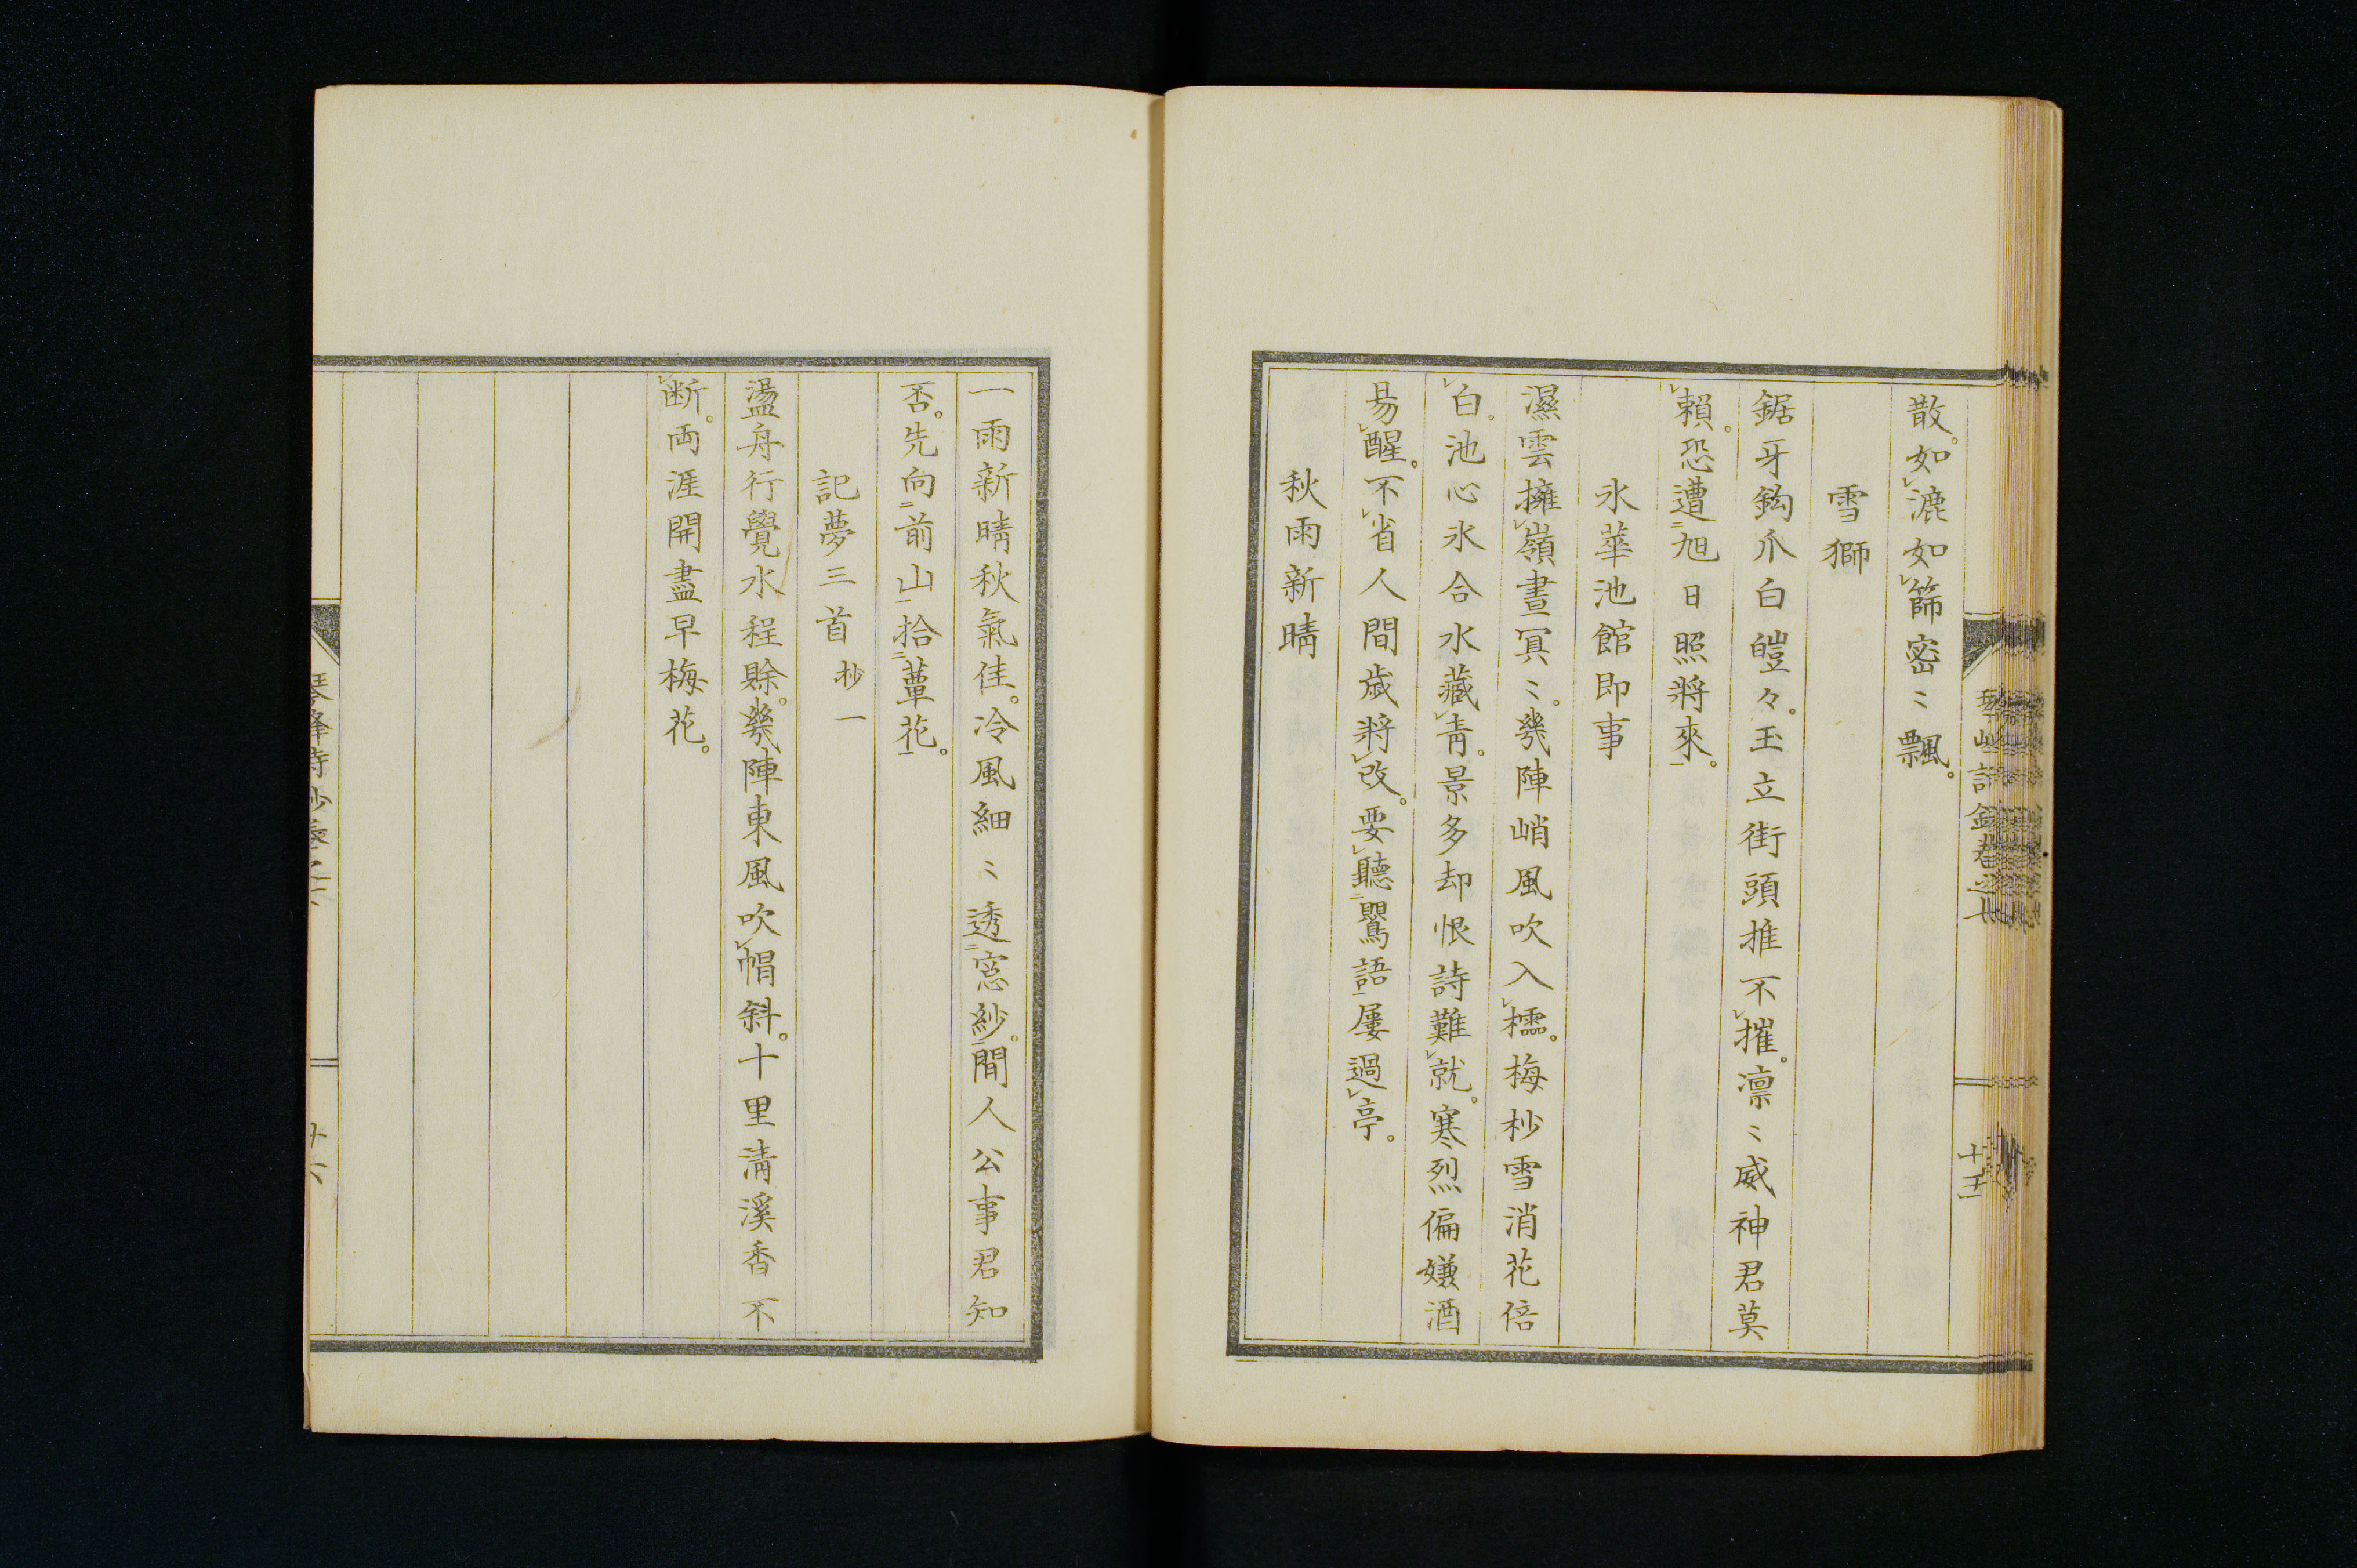 散。如漉如篩密〻飄。
雪獅
鋸牙鈎爪白皚々。玉立街頭推不摧。凛〻威神君莫
賴。恐遭旭日照將來。
氷華池館即事
濕雲擁嶺晝冥〻。幾陣峭風吹入櫺。梅杪雪消花倍
白。池心氷合水藏青。景多却恨詩難就。寒烈偏嫌酒
易醒。不省人間歳將改。要聽鸎語屢過亭。
秋雨新晴
一雨新晴秋氣佳。冷風細〻透窓紗。閒人公事君知
否。先向前山拾蕈花。
記夢三首 抄一
盪舟行覺水程賖。幾陣東風吹帽斜。十里淸溪香不
断。両涯開盡早梅花。